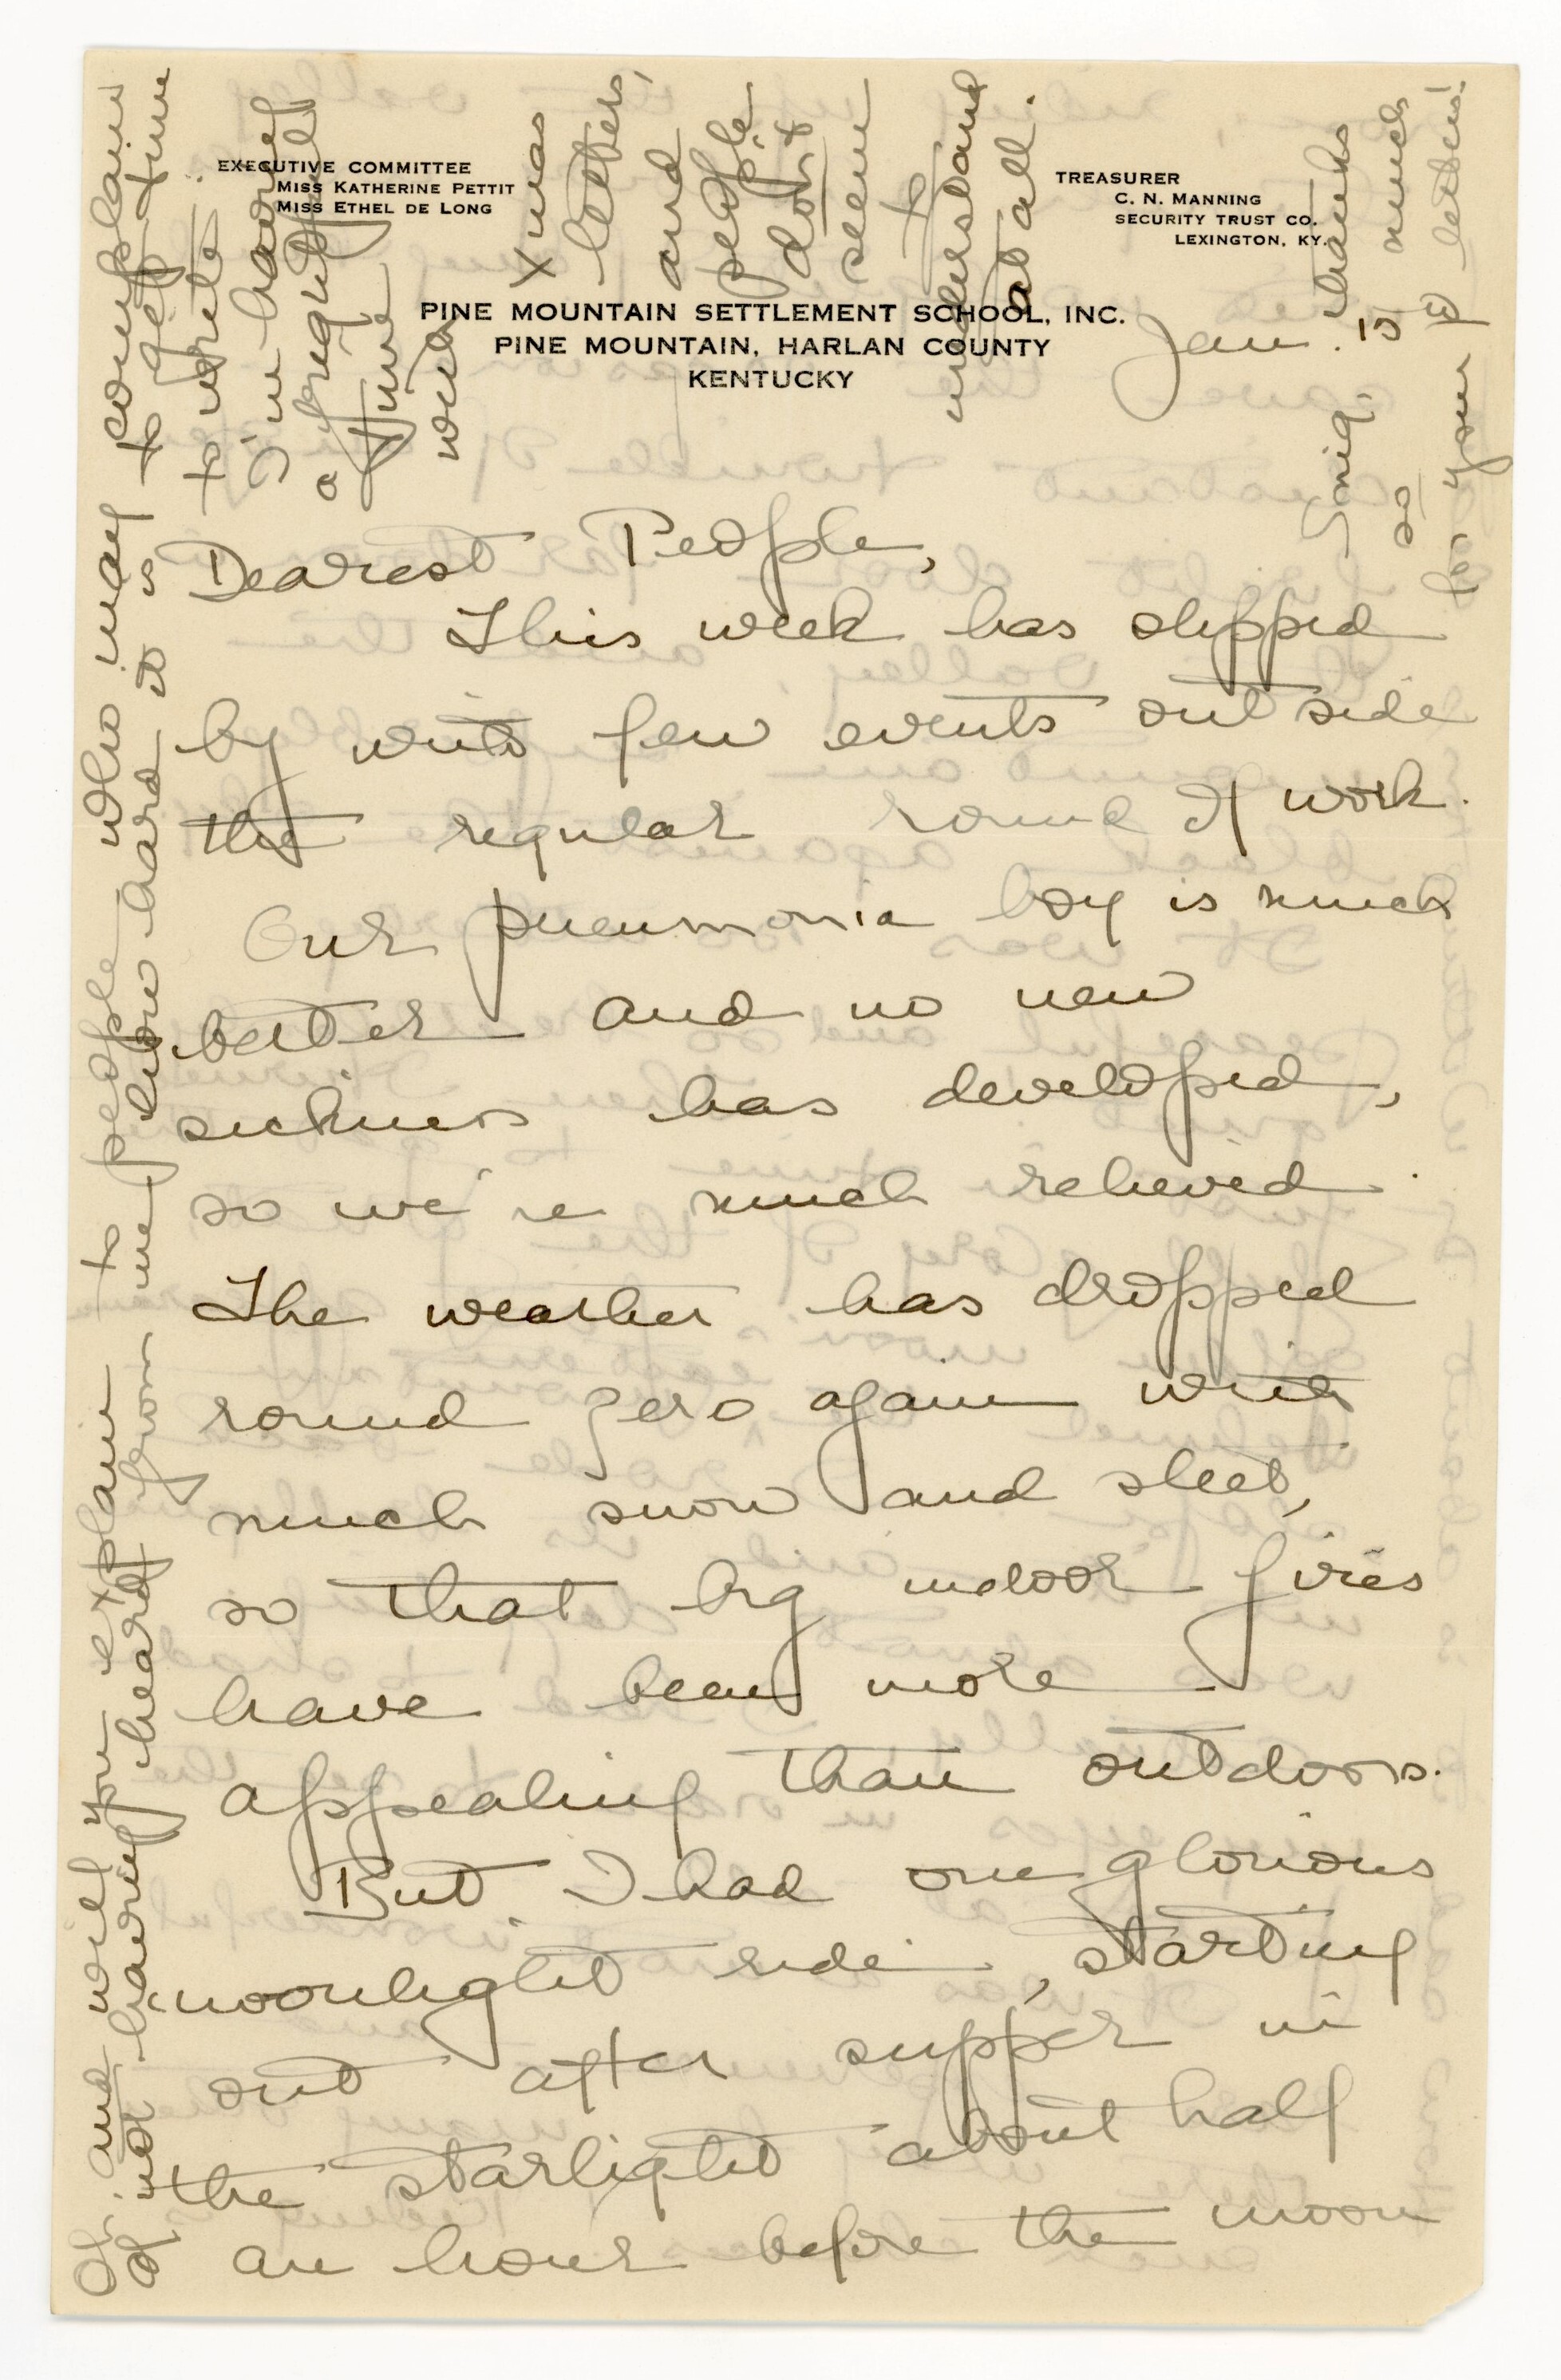 EXECUTIVE COMMITTEE
MISS KATHERINE PETTIT
MISS ETHEL DE LONG
TREASURER
C. N. MANNING
SECURITY TRUST CO.
LEXINGTON, KY.
PINE MOUNTAIN SETTLEMENT SCHOOL, INC.
PINE MOUNTAIN, HARLAN COUNTY
KENTUCKY
Jan. 15
Dearest People,
This week has slipped
by with few events outside
the regular round of work.
Our pneumonia boy is much
better and no new
sickness has developed,
so we're much relieved.
The weather has dropped
round zero again with
much snow and sleet,
so that big indoor fires
have been more
appealing than outdoors.
But I had one glorious
moonlight ride, starting
out after supper in
the starlight about half
an hour before the moon
Oh, and will you explain to people who may complain
of not having heard from me how hard it is to get time
to write.
I'm having
a frightful
time
with
Xmas
letters,
and
people
don't
seem
to
understand
at all.
thanks
so much
for your letters!